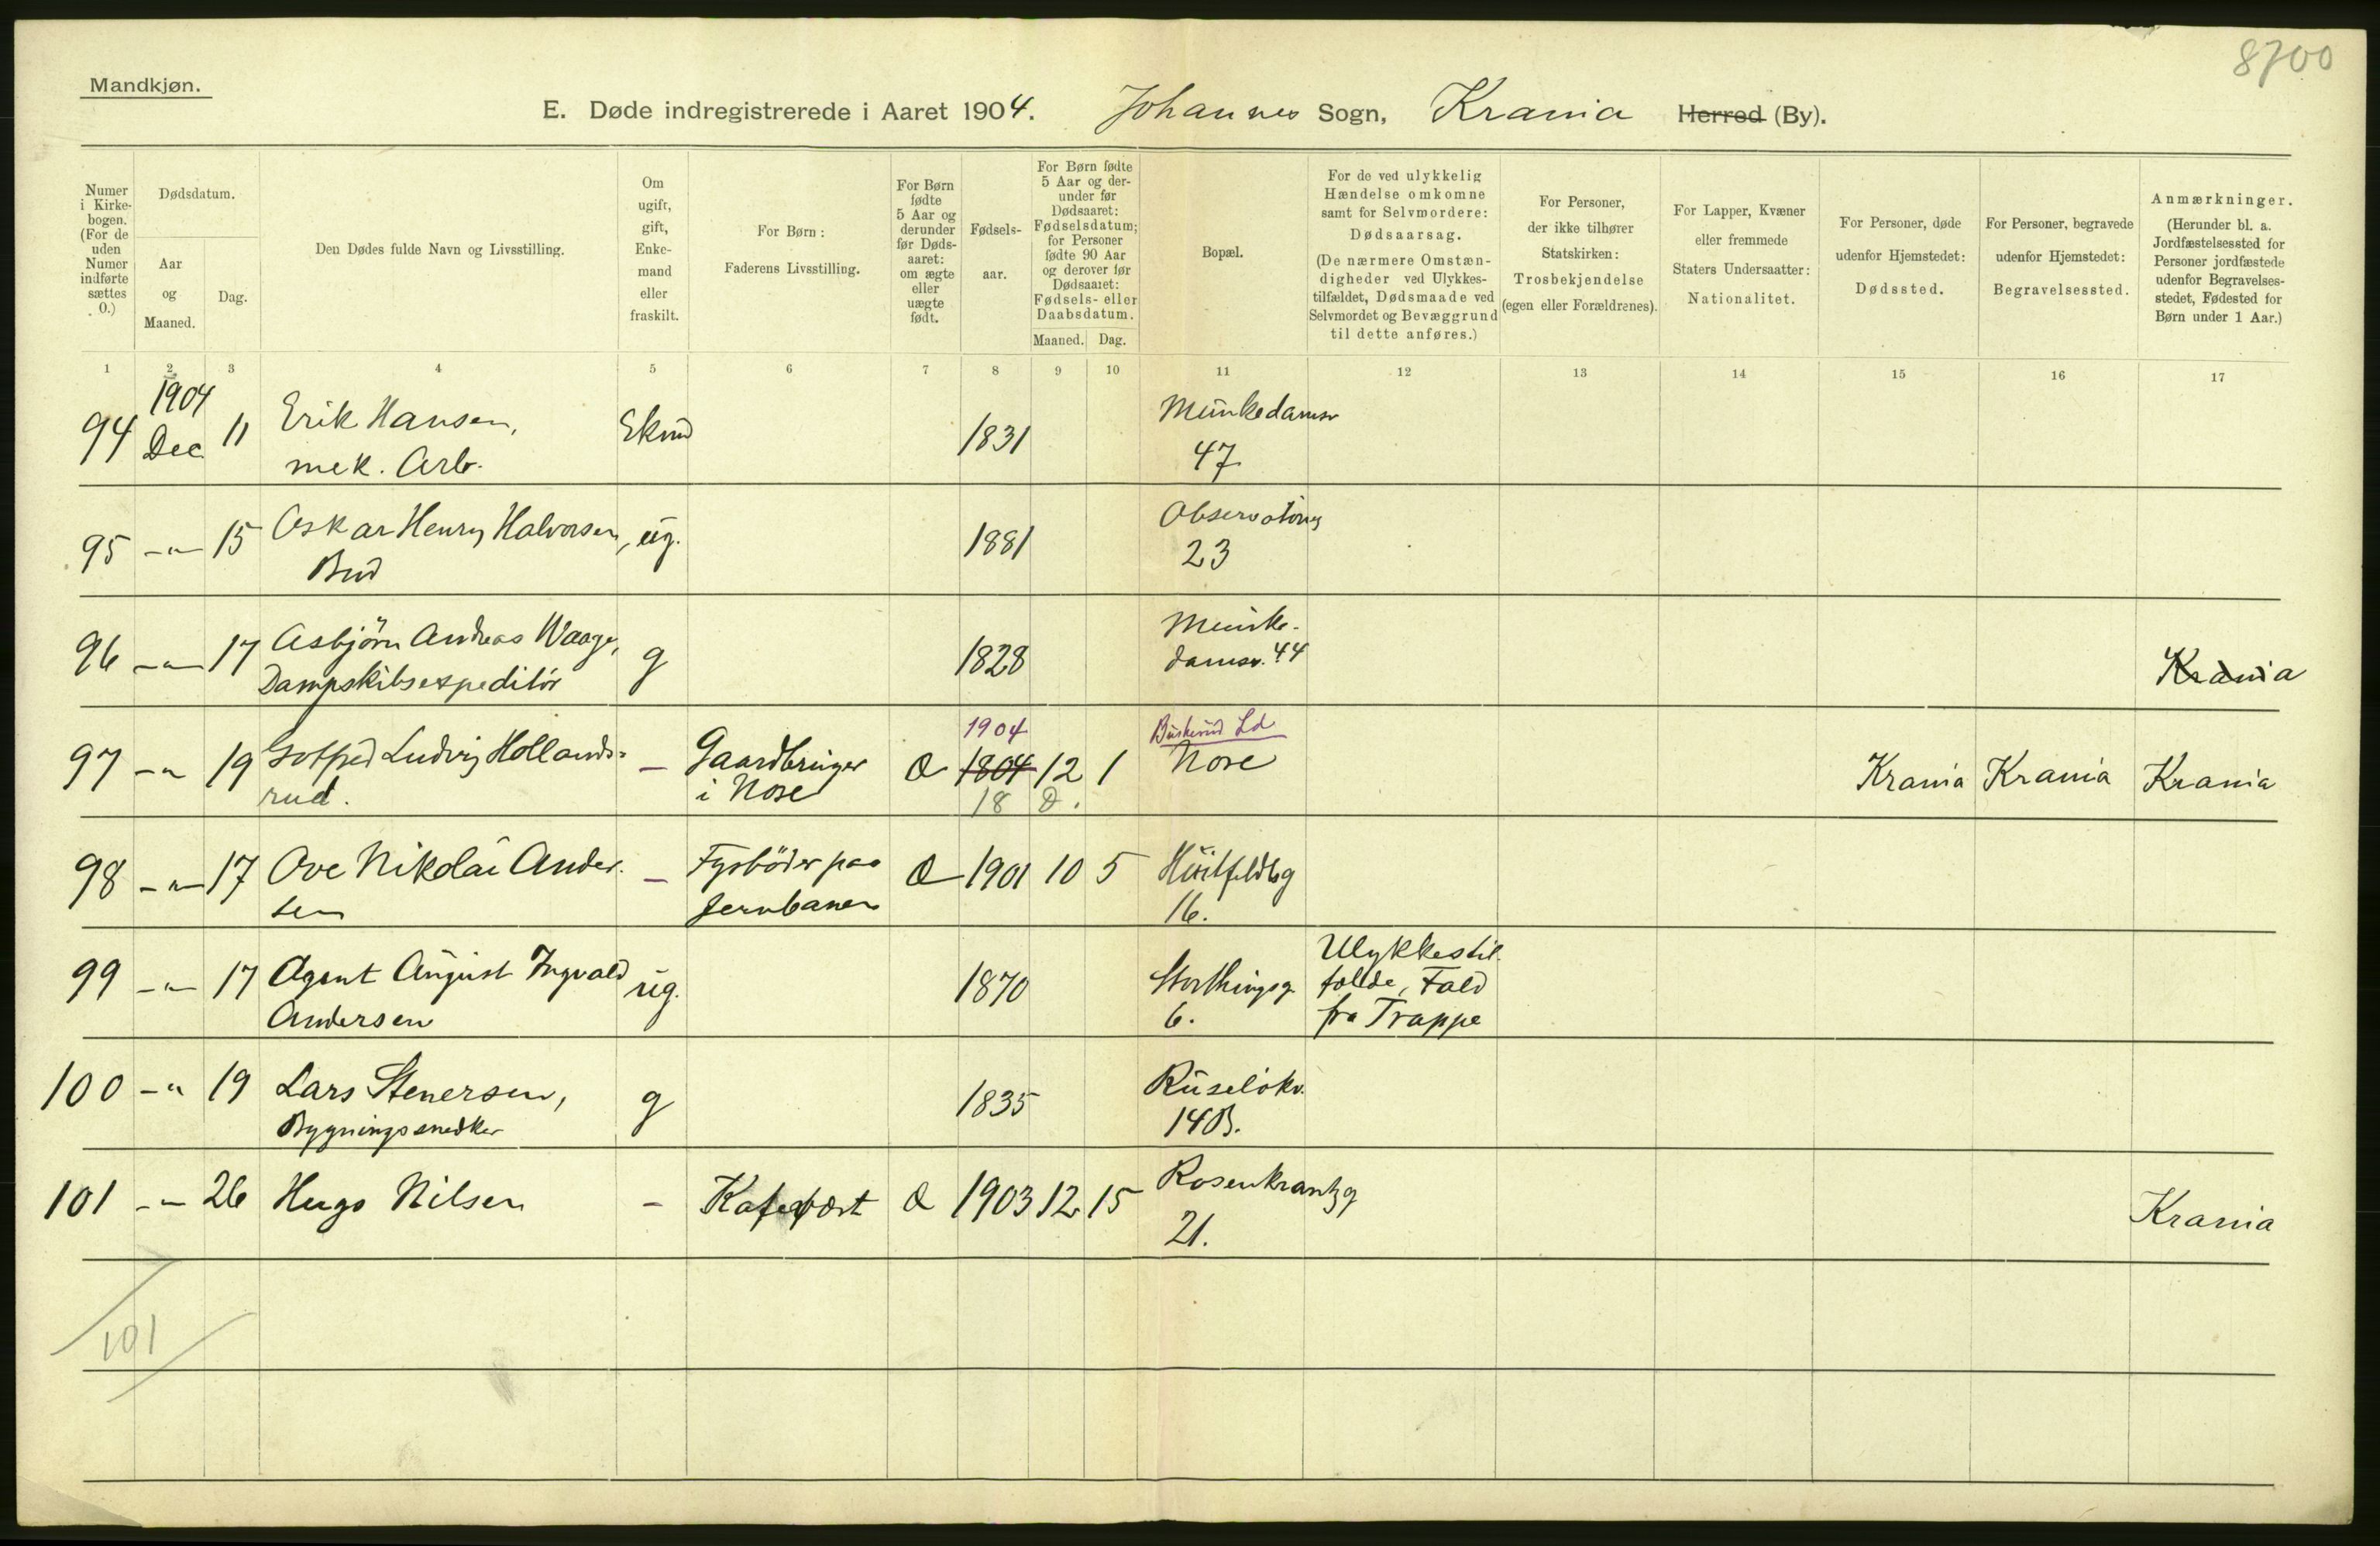 8700
Mandkjøn.
E. Døde indregistrerede i Aaret 1904. Johannes Sogn, Krania Herred (By).
Numer i Kirkebogen. (For de uden Numer indførte sættes 0.)
Dødsdatum.
Aar og Maaned.
Dag.
Den Dødes fulde Navn og Livsstilling.
Om ugift, gift, Enkemand eller fraskilt.
For Børn: Faderens Livsstilling.
For Børn fødte 5 Aar og derunder før Dødsaaret: om ægte eller uægte født.
Fødselsaar.
For Børn fødte 5 Aar og derunder før Dødsaaret: Fødselsdatum; for Personer fødte 90 Aar og derover før Dødsaaret: Fødsels- eller Daabsdatum.
Maaned. Dag.
Bopæl.
For de ved ulykkelig Hændelse omkomne samt for Selvmordere: Dødsaarsag. (De nærmere Omstændigheder ved Ulykkestilfældet, Dødsmaade ved Selvmordet og Bevæggrund til dette anføres.)
For Personer, der ikke tilhører Statskirken: Trosbekjendelse (egen eller Forældrenes).
For Lapper, Kvæner eller fremmede Staters Undersaatter: Nationalitet.
For Personer, døde udenfor Hjemstedet: Dødssted.
For Personer, begravede udenfor Hjemstedet: Begravelsessted.
Anmærkninger. (Herunder bl. a. Jordfæstelsessted for Personer jordfæstede udenfor Begravelsesstedet, Fødested for Børn under 1 Aar.)
1 2 3 4 5 6 7 8 9 10 11 12 13 14 15 16 17
1904
94 Dec. 11 Erik Hansen, Ekmd 1831 Munkedamsv
mek. Arb. 47
95 -"- 15 Oskar Henry Halvorsen, ug. 1881 Observatorieg
Bud 23
96 -"- 17 Asbjörn Andreas Waage, g 1828 Munke-
Dampskibsexpeditör damsv. 44 Krania
1904 Buskerud Ld
97 -"- 19 Gotfred Ludvig Hollands= - Gaardbruger Æ 1804 12 1 Nore Krania Krania Krania
rud. i Nore 18 D.
98 -"- 17 Ove Nikolai Ander- - Fyrböder paa Æ 1901 10 5 Huitfeldtsg
sen Jernbanen 16.
99 -"- 17 Agent August Ingvald ug. 1870 Storthingsg. Ulykkestil-
Andersen 6. fælde, Fald
fra Trappe
100 -"- 19 Lars Stenersen, g 1835 Ruselökv.
Bygningssnedker 14B.
101 -"- 26 Hugo Nilsen - Kafevært Æ 1903 12 15 Rosenkrantzg
21. Krania
101